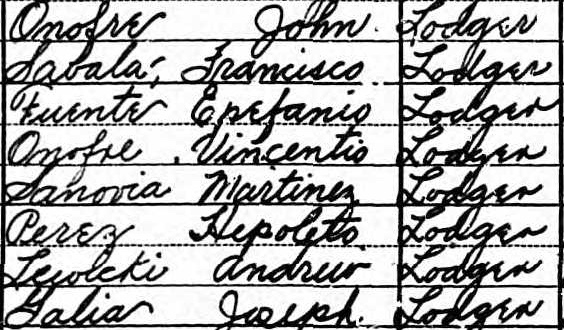 Onofre John Lodger
Sabala, Francisco Lodger
Fuente Epefanio Lodger
Onofre Vincentio Lodger
Sanovia Martinez Lodger
Perez Hepoleto Lodger
Andrew Lodger
Galia Joseph. Lodger